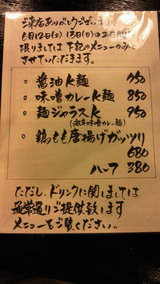 ご来店ありがとうございます
6月12日(土)13日(日)の2日間に
限りましては下記のメニューのみと
させていただきます。
・醤油K麺 850
・味噌カレーK麺 850
・麺ジャラスK 950
(激辛味噌カレー麺)
・鶏もも唐揚げガッツリ
680
ハーフ 380
ただし、ドリンクに関しましては
通常通りご提供致します
メニューをご覧ください。